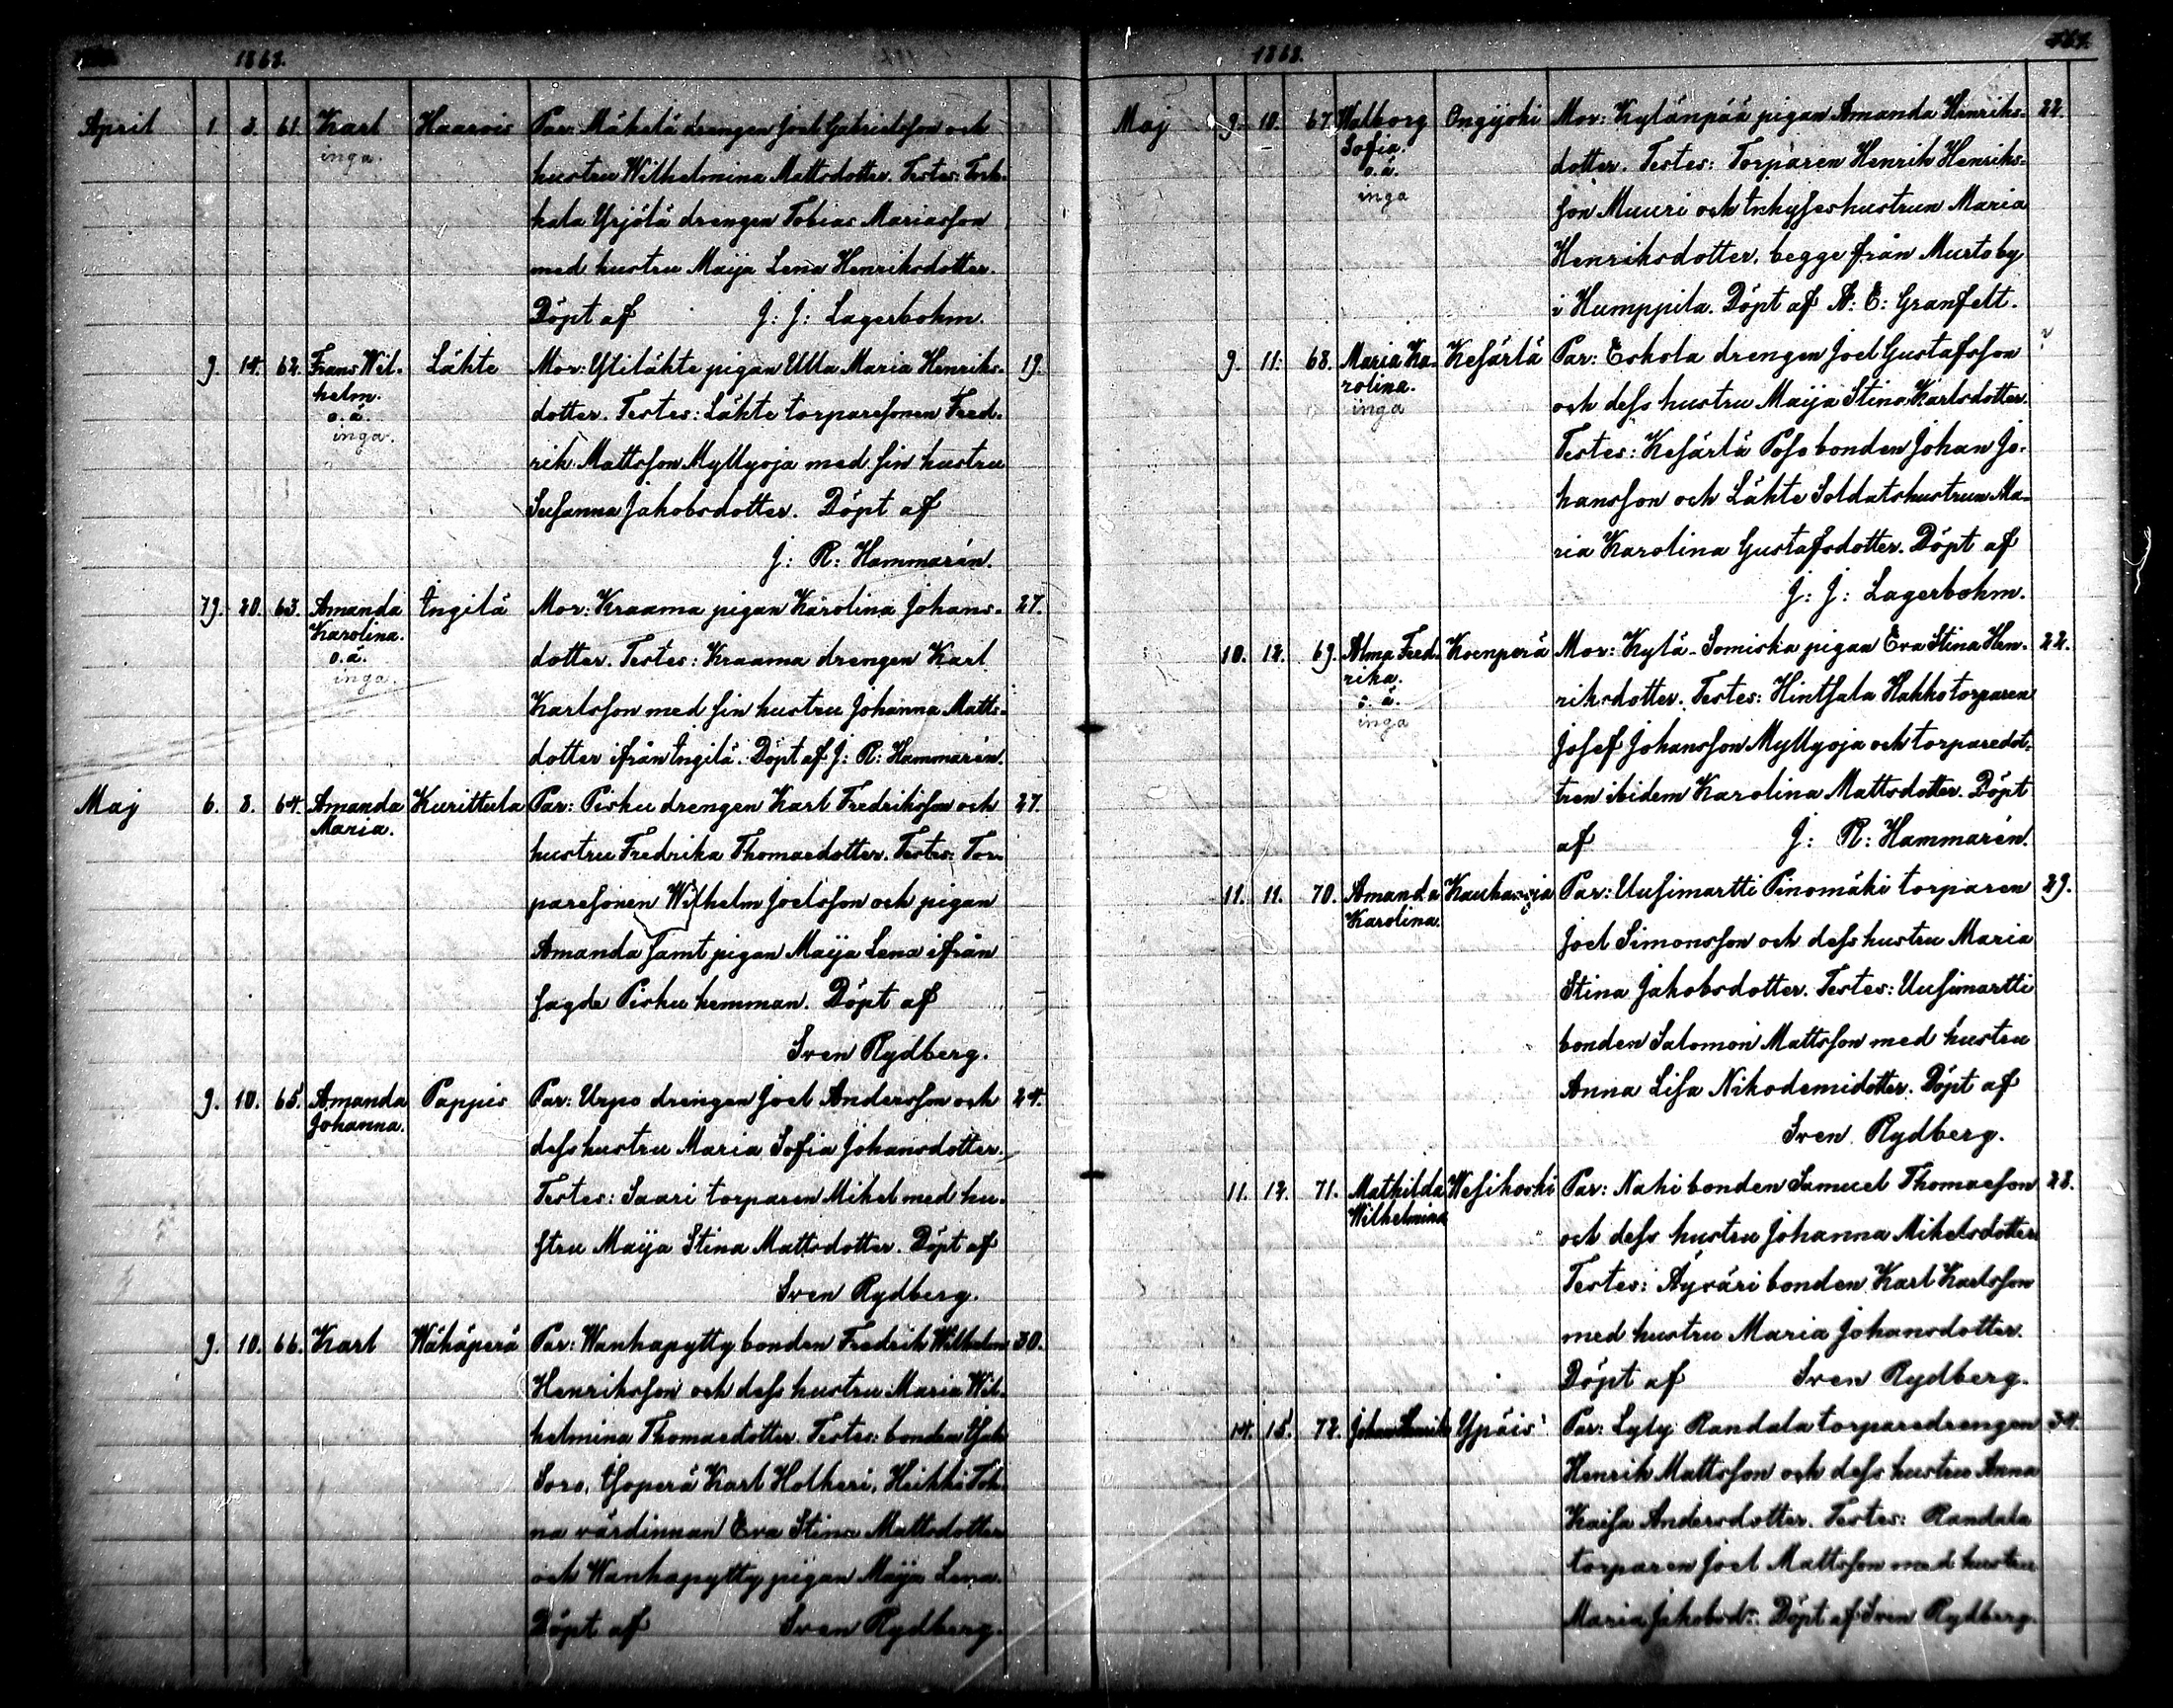 1868.
April 1. 3. 61. Karl Haarois Par: Mäkelä drengen Joel Gabrielsson och
inga. hustru Wilhelmina Mattsdotter. Testes: Tork-
kala Yrjölä drengen Tobias Mariasson
med hustru Maija Lena Henriksdotter.
Döpt af J: J: Lagerbohm.
9. 14. 62. Frans Wil- Läkte Mor: Ylitäkte pigan Ulla Maria Henriks- 19.
helm. dotter. Testes: Läkte torparesonen Fred-
o.ä.
inga. rik Mattsson Myllyoja med sin hustru
Susanna Jakobsdotter. Döpt af
J: R: Hammarén.
19. 20. 63. Amanda Ingilä Mor: Kraama pigan Karolina Johans- 27.
Karolina.
o.ä. dotter. Testes: Kraama drengen Karl
inga.
Karlsson med sin hustru Johanna Matts-
dotter ifrån Ingilä. Döpt af J: R: Hammarén.
Maj 6. 8. 64. Amanda Kurittula Par: Pisku drengen Karl Fredriksson och 27.
Maria. hustru Fredrika Thomasdotter. Testes: Tor-
paresonen Wilhelm Joelsson och pigan
Amanda samt pigan Maija Lena ifrån
sagde Pisku hemman. Döpt af
Sven Rydberg.
9. 10. 65. Amanda Pappis Par: Urpo drengen Joel Andersson och 24.
Johanna. dess hustru Maria Sofia Johansdotter.
Testes: Saari torparen Mikel med hu-
stru Maija Stina Mattsdotter. Döpt af
Sven Rydberg.
9. 10. 66. Karl Wähäperä Par: Wanhapytty bonden Fredrik Wilhelm 30.
Henriksson och dess hustru Maria Wil-
helmina Thomasdotter. Testes: bonden
Soro, Isoperä Karl Holkeri, Heikki
na värdinnan Eva Stina Mattsdotter
och Wanhapytty pigan Maija Lena.
Döpt af Sven Rydberg.
1868.
Maj 9. 10. 67. Walborg Ongijoki Mor: Kylänpää pigan Amanda Henriks- 22.
Sofia. dotter. Testes: Torparen Henrik Henriks-
o.ä.
inga son Muuri och Inhyseshustrun Maria
Henriksdotter, begge från Murto by
i Humppila. Döpt af A: E: Granfelt.
9. 11. 68. Maria Ka- Kesärlä Par: Eskola drengen Joel Gustafsson ?
rolina. och dess hustru Maija Stina Karlsdotter.
inga
Testes: Kesärlä Poso bonden Johan Jo-
hansson och Läkte Soldatshustrun Ma-
ria Karolina Gustafsdotter. Döpt af
J: J: Lagerbohm.
10. 12. 69. Alma Fred- Koenperä Mor: Kylä-Somiska pigan Eva Stina Hen- 22.
rika. riksdotter. Testes: Hintsala Hakko torparen
o.ä.
inga
Josef Johansson Myllyoja och torparedot-
tren ibidem Karolina Mattsdotter. Döpt
af J: R: Hammarén.
11. 11. 70. Amanda Kauhanoja Par: Uusimartti Pinomäki torparen 29.
Karolina. Joel Simonsson och dess hustru Maria
Stina Jakobsdotter. Testes: Uusimartti
bonden Salomon Mattsson med hustru
Anna Lisa Nikodemidotter. Döpt af
Sven Rydberg.
11. 12. 71. Mathilda Wesikoski Par: Nahi bonden Samuel Thomasson 28.
Wilhelmina och dess hustru Johanna Mikelsdotter
Testes: Äyväri bonden Karl Karlsson
med hustru Maria Johansdotter.
Döpt af Sven Rydberg.
14. 15. 72. Johan Henrik Ypäis Par: Lyly Randala torparedrengen 34.
Henrik Mattsson och dess hustru Anna
Kaisa Andersdotter. Testes: Randala
torparen Joel Mattsson med hustru
Maria Jakobsd:r Döpt af Sven Rydberg.